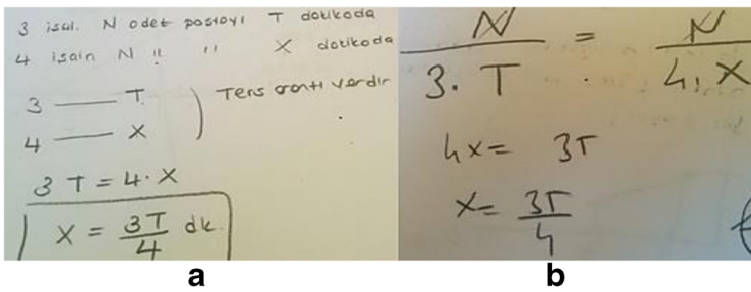 3 isci. N adet postayı T dakikada
4 iscin N " " X dakikada
3 — T
4 — X
) Ters orantı vardır
3 T = 4 . X
X = 3T/4 dk
a
N/3. T = N/4. X
4x = 3T
x = 3T/4
b